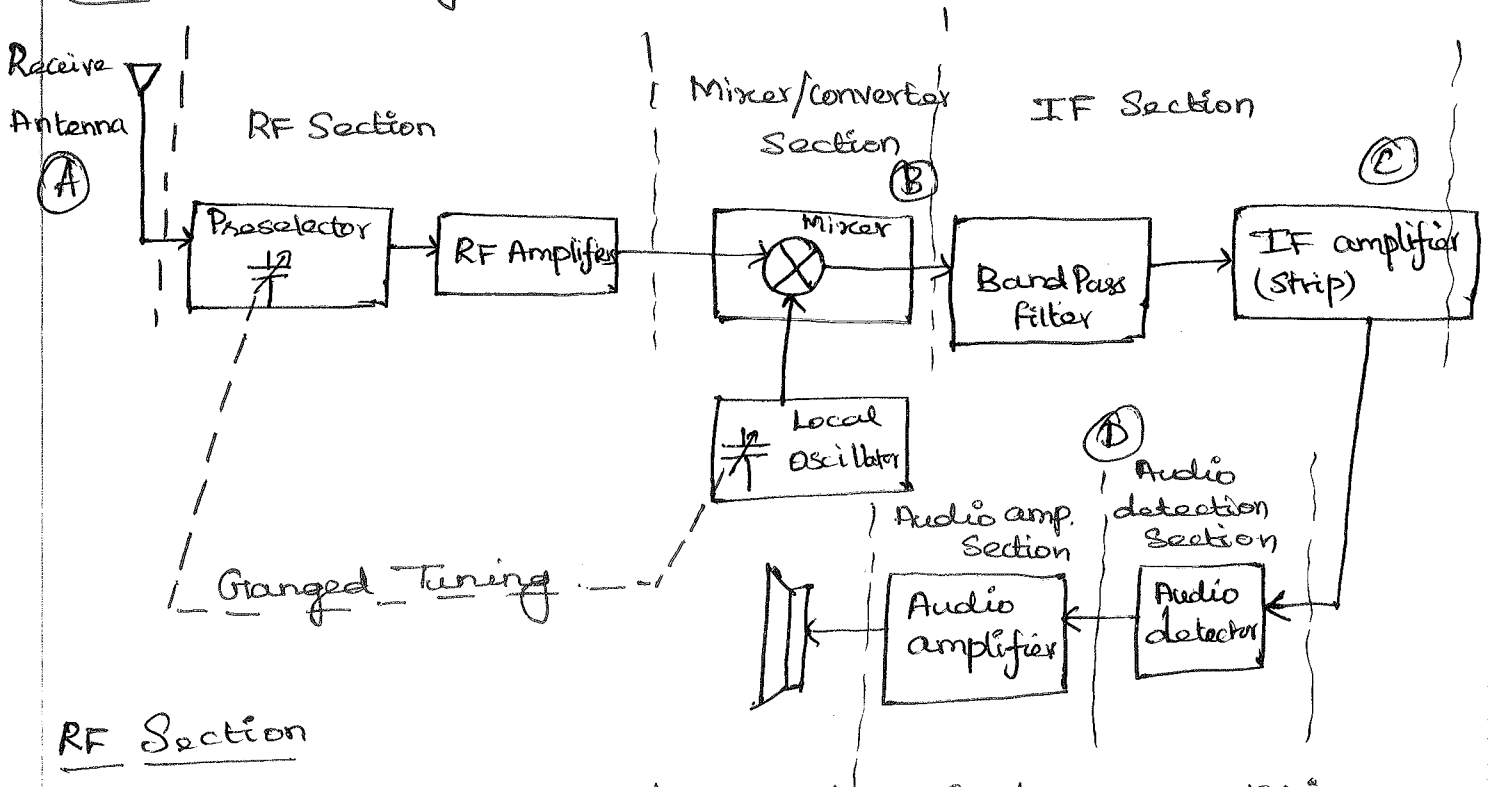 Receive
Antenna
A
RF Section
Mixer/converter
Section
B
IF Section
C
Preselector
RF Amplifier
Mixer
Band Pass
filter
IF amplifier
(Strip)
Local
Oscillator
D
Audio
detection
Section
Audio amp.
Section
Ganged Tuning
Audio
amplifier
Audio
detector
RF Section